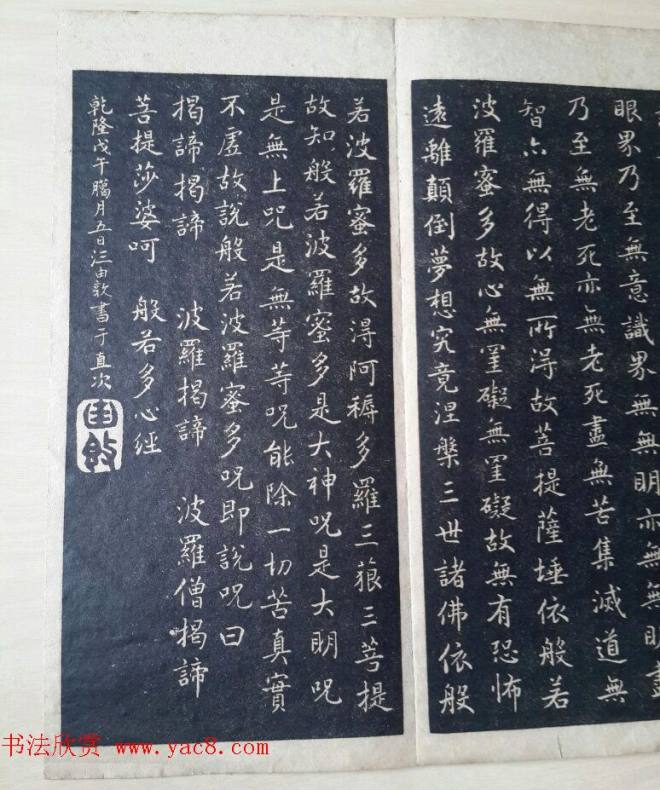 眼界乃至無意識界無無明亦無無明盡
乃至無老死亦無老死盡無苦集滅道無
智亦無得以無所得故菩提薩埵依般若
波羅蜜多故心無罣礙無罣礙故無有恐怖
遠離顛倒夢想究竟涅槃三世諸佛依般
若波羅蜜多故得阿耨多羅三藐三菩提
故知般若波羅蜜多是大神咒是大明咒
是無上咒是無等等咒能除一切苦真實
不虛故說般若波羅蜜多咒即說咒曰
揭諦揭諦 波羅揭諦 波羅僧揭諦
菩提莎婆呵 般若多心經
乾隆戊午臘月五日汪由敦書于直次
由敦
书法欣赏 www.yac8.com